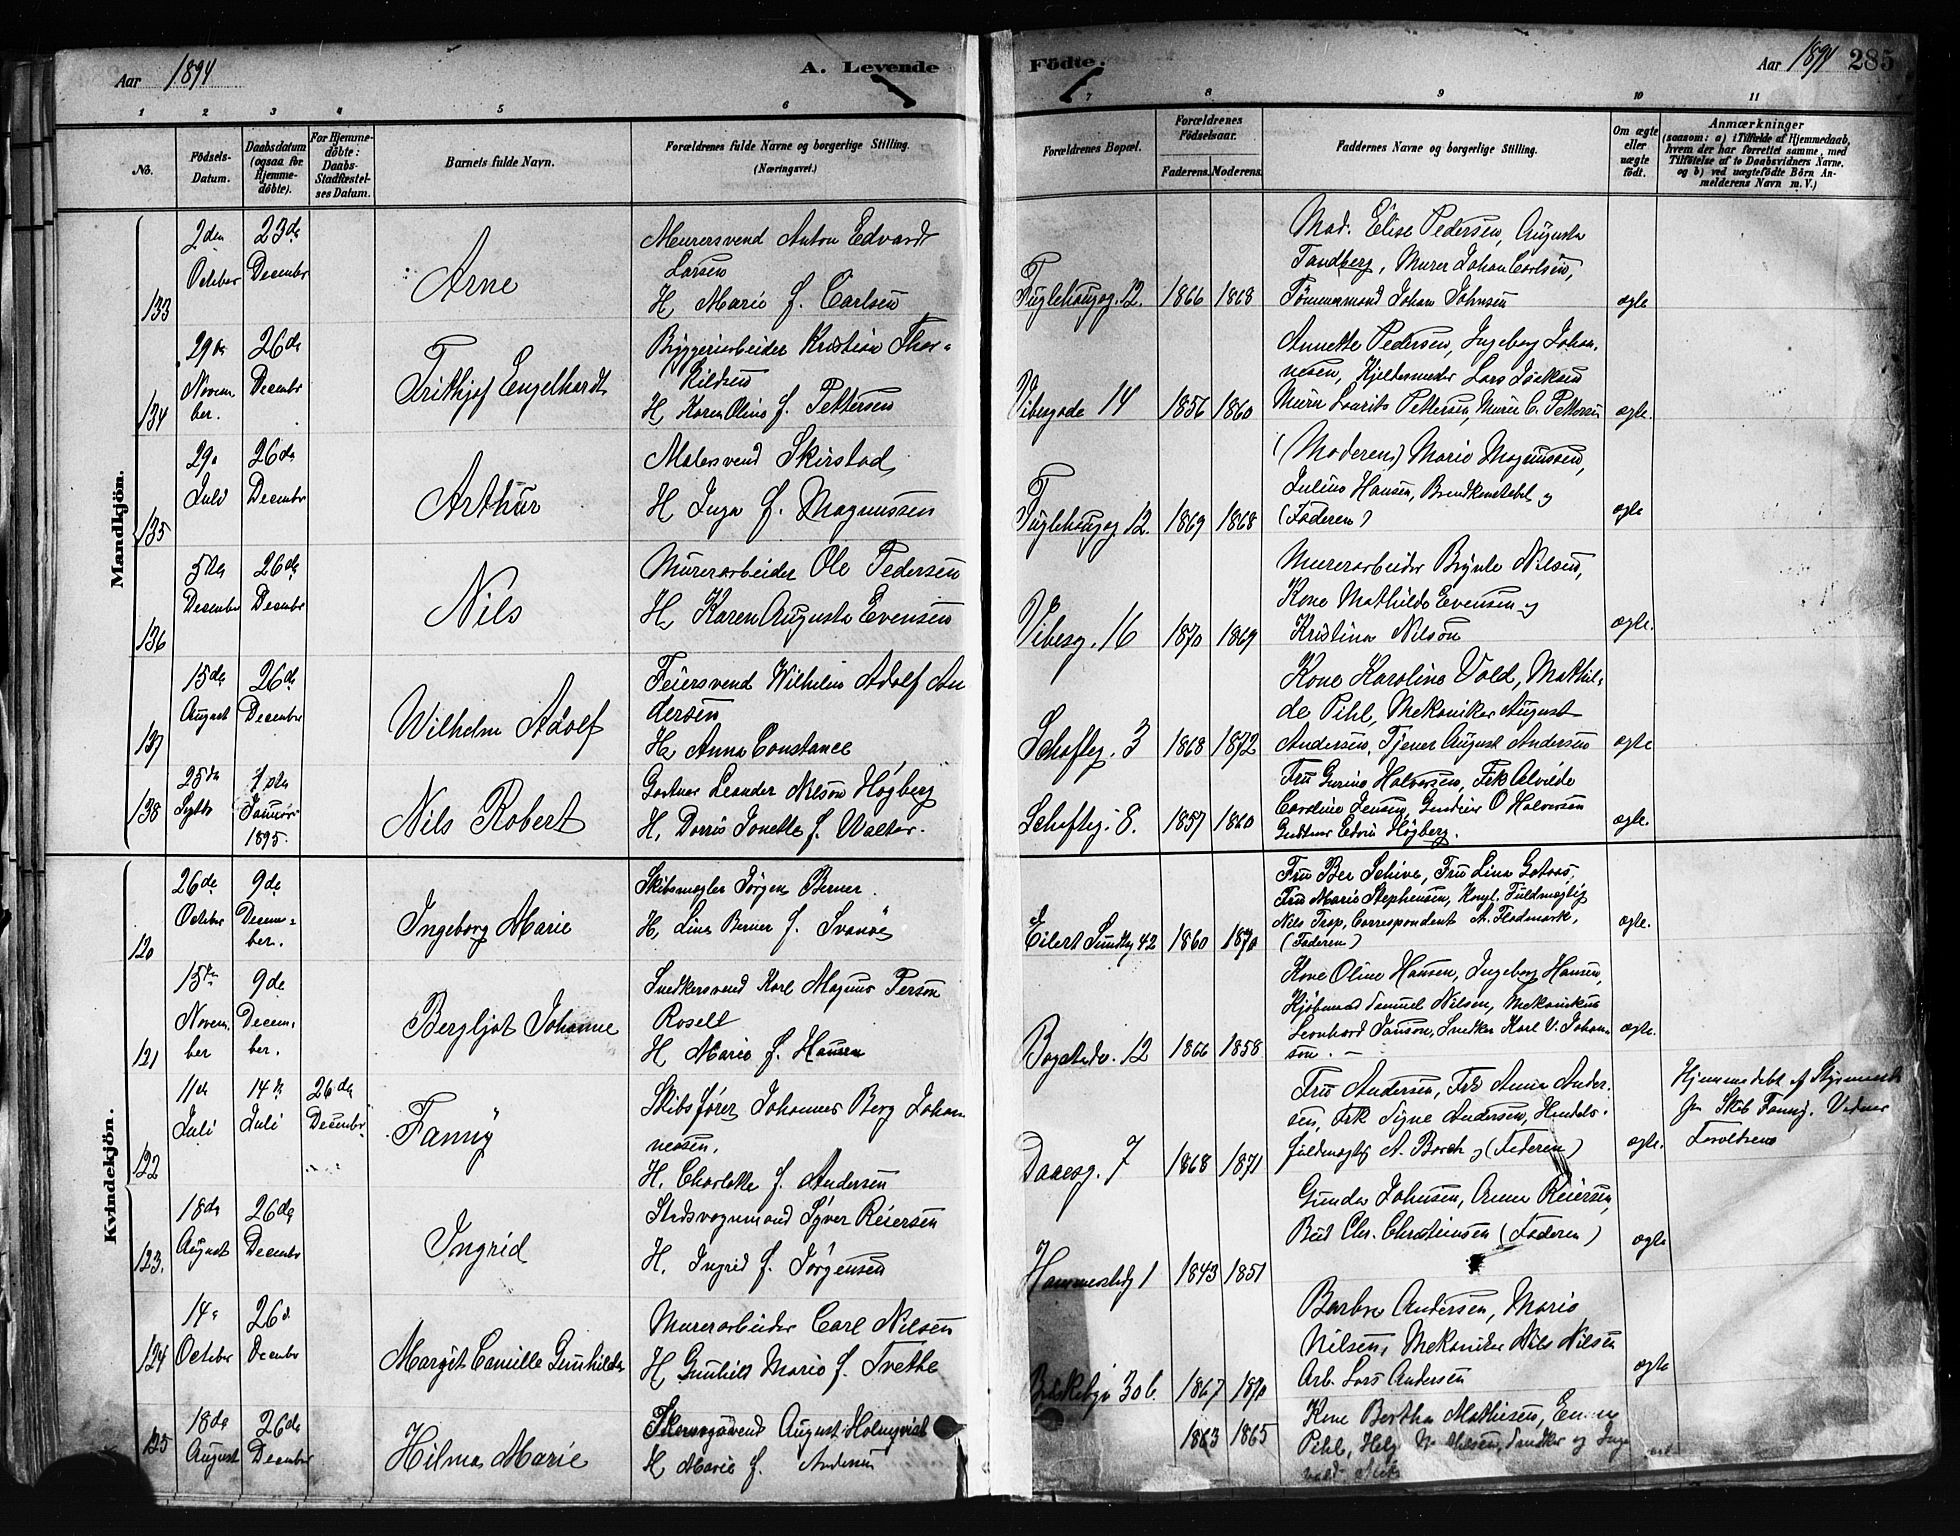 Aar 1894
A. Levende
Fødte.
Aar 1894 285
1 2 3 4 5 6 7 8 9 10 11
No.
Fødsels-
Datum.
Daabsdatum
(ogsaa for
Hjemme-
døbte).
For Hjemme-
døbte:
Daabs-
Stadfæstel-
ses Datum.
Barnets fulde Navn.
Forældrenes fulde Navne og borgerlige Stilling.
(Næringsvei.)
Forældrenes Bopæl.
Forældrenes
Fødselsaar.
Faderens. Moderens.
Faddernes Navne og borgerlige Stilling.
Om ægte
eller
uægte
født.
Anmærkninger
(saasom: a) i Tilfælde af Hjemmedaab,
hvem der har forrettet samme, med
Tilføielse af to Daabsvidners Navne.
og b) ved uægtefødte Børn An-
melderens Navn m. V.)
Mandkjøn.
133
2den
October
23de
December
Arne
Murersvend Anton Edvard
Larsen
H. Marie f. Carlsen
Fuglehaugg. 12.
1866 1868
Mad. Elise Pedersen, Augusta
Tandberg, Murer Johan Carlsen,
Tømmermand Johan Johnsen
ægte
134
29de
Novem
ber.
26de
Decembr
Frithjof Engelhardt
Bryggeriarbeider Kristian Thor-
kildsen
H. Karen Oline f. Pettersen
Vibesgade 14
1856 1860
Annette Pedersen, Ingeborg Johan-
nesen, Kjeldersmeder Lars Isaksen
Murer Laurits Pettersen, Murer C. Pettersen
ægte.
135
29
Juli
26de
Decembr
Arthur
Malersvend Skirstad
H. Inga f. Magnussen
Fuglehaugg. 12.
1869 1868
(Moderen) Marie Magnussen,
Julius Hansen, Brandkonstabel og
(Faderen)
ægte
136
5te
Desember
26de
Decembr
Nils
Murerarbeider Ole Pedersen
H. Karen Augusta Evensen
Vibesg. 16
1870 1869
Murerarbeider Brynle Nilsen,
Kone Mathilde Evensen og
Kristina Nilson
ægte.
137
15de
August
26de
December
Wilhelm Adolf
Feiersvend Wilhelm Adolf An
dersen
H. Anna Constance
Schøftg. 3
1868 1872
Kone Karoline Vold, Mathil-
de Pihl, Mekaniker August
Andersen, Tjener August Andersen
ægte
138
25de
Septb
1ste
Januar
1895.
Nils Robert
Gartner Leander Nilson Högberg
H. Dorris Jonette f. Walter.
Schøftg. 8.
1857 1860
Fru Gurine Halvorsen, Frk Alvilde
Caroline Jensen, Gunerius O Halvorsen
Gartner Edvin Högberg.
ægte.
Kvindekjøn.
120
26de
October
9de
Decem-
ber.
Ingeborg Marie
Skibsmægler Jørgen Berner.
H. Lina Berner f. Svanøe
Eilert Sundtg. 42
1860 1870
Fru Ber Schive, Fru Lina Gotaas,
Fru Marie Stephensen, Kongl. Fuldmægtig
Nils Trap, Correspondent A. Flodmark,
(Faderen)
ægte.
121
15de
Novem-
ber
9de
Decem-
ber.
Bergljot Johanne
Snedkersvend Karl Magnus Person
Rosell
H. Marie f. Hansen
Bogstadv. 12
1866 1858
Kone Oline Hansen, Ingeborg Hansen,
Kjøbmand Samuel Nilsen, Mekanikus
Leonhard Janson, Snedker Karl V. Johan
son. –
ægte.
122
11de
Juli
14de
Juli
26de
Decembr
Fanny
Skibsfører Johannes Berg Johan
nesen,
H. Charlotte f. Andersen
Daaesg. 7
1868 1871
Fru Andersen, Frk Anna Ander-
sen, Frk Signe Andersen, Handels-
fuldmægtig A. Borch og (Faderen)
ægte.
Hjemmedøbt af Styrmand
paa Skib Fanny. Vidner
Forældrene
123.
18de
August
26de
Decembr
Ingrid
Stadsvognmand Syver Reiersen
H. Ingrid f. Jørgensen
Hammerstadg 1
1843 1851
Gunda Johnsen, Anna Reiersen,
Bud Chr. Christensen (Faderen)
ægte
124
14
October
26d
December
Margit Camille Gunhilda
Murerarbeider Carl Nilsen
H. Gunhild Marie f. Tvethe
30b.
1867 1870
Barbra Andersen, Marie
Nilsen, Mekaniker Nils Nilsen
Arb. Lars Andersen
ægte
125
18de
August
26de
December
Hilma Marie
August Holmqvist
H. Marie f. Andersen
1863 1865
Kone Bertha Mathisen,
Pihl,